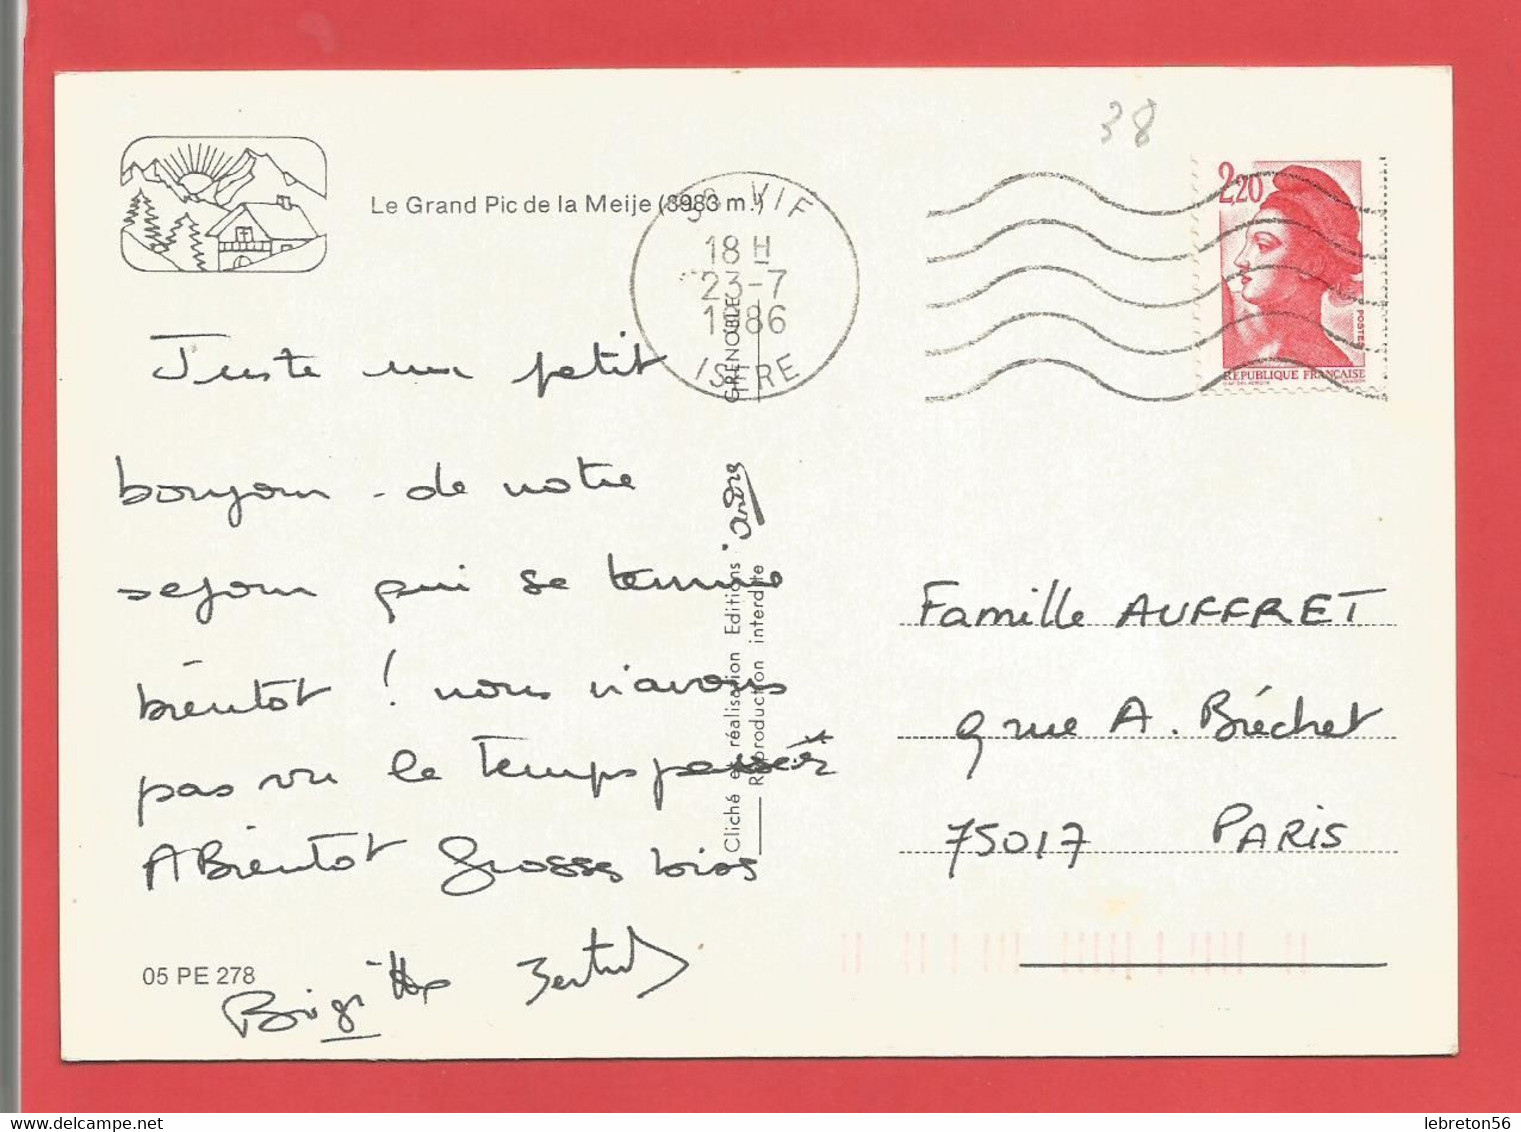 38
Le Grand Pic de la Meije (3983 m.)
38 VIF
18 H
23-7
1986
ISERE
2,20
POSTES
REPUBLIQUE FRANÇAISE
Juste un petit
bonjour - de notre
sejour qui se termine
bientôt ! nous n'avons
pas vu le temps passer
A Bientôt Grosses bises
Brigitte Bertrand
05 PE 278
GRENOBLE
Cliché et réalisation Editions andré
Reproduction interdite
Famille AUFFRET
9 rue A. Bréchet
75017 PARIS
lebreton56